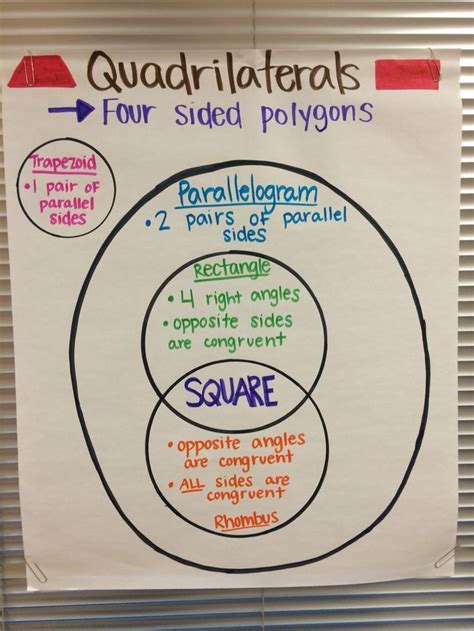 Quadrilaterals
→ Four sided polygons
Trapezoid
• 1 pair of
parallel
sides
Parallelogram
• 2 pairs of parallel
sides
Rectangle
• 4 right angles
• opposite sides
are congruent
SQUARE
• opposite angles
are congruent
• ALL sides are
congruent
Rhombus